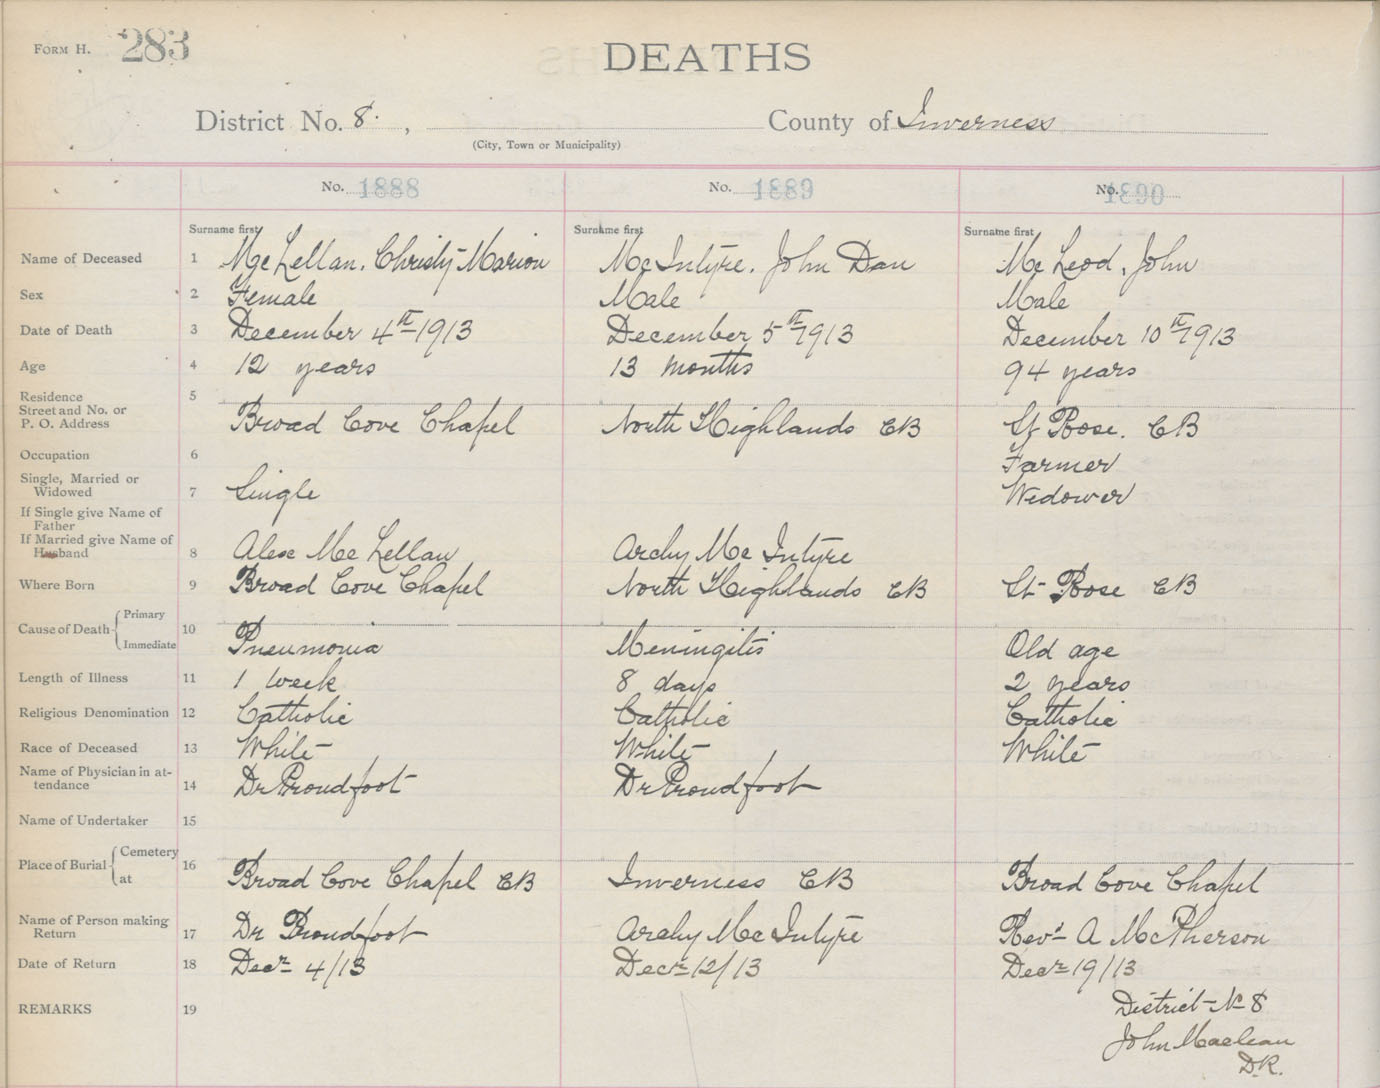 FORM H. 283
DEATHS
District No. 8. , County of Inverness
(City, Town or Municipality)
No. 1888 No. 1889 No. 1890
Surname first Surname first Surname first
Name of Deceased 1 McLellan. Christy Marion McIntyre. John Dan McLeod. John
Sex 2 Female Male Male
Date of Death 3 December 4th 1913 December 5th 1913 December 10th 1913
Age 4 12 years 13 months 94 years
Residence 5
Street and No. or
P. O. Address Broad Cove Chapel North Highlands CB St Rose. CB
Occupation 6 Farmer
Single, Married or
Widowed 7 Single Widower
If Single give Name of
Father
If Married give Name of
Husband 8 Alex McLellan Archy McIntyre
Where Born 9 Broad Cove Chapel North Highlands CB St Rose CB
Cause of Death Primary 10
Immediate Pneumonia Meningitis Old age
Length of Illness 11 1 week 8 days 2 years
Religious Denomination 12 Catholic Catholic Catholic
Race of Deceased 13 White White White
Name of Physician in at-
tendance 14 Dr Proudfoot Dr Proudfoot
Name of Undertaker 15
Place of Burial Cemetery 16
at Broad Cove Chapel CB Inverness CB Broad Cove Chapel
Name of Person making
Return 17 Dr Proudfoot Archy McIntyre Revd A McPherson
Date of Return 18 Decr 4/13 Decr 12/13 Decr 19/13
REMARKS 19 District No 8
John Maclean
D.R.